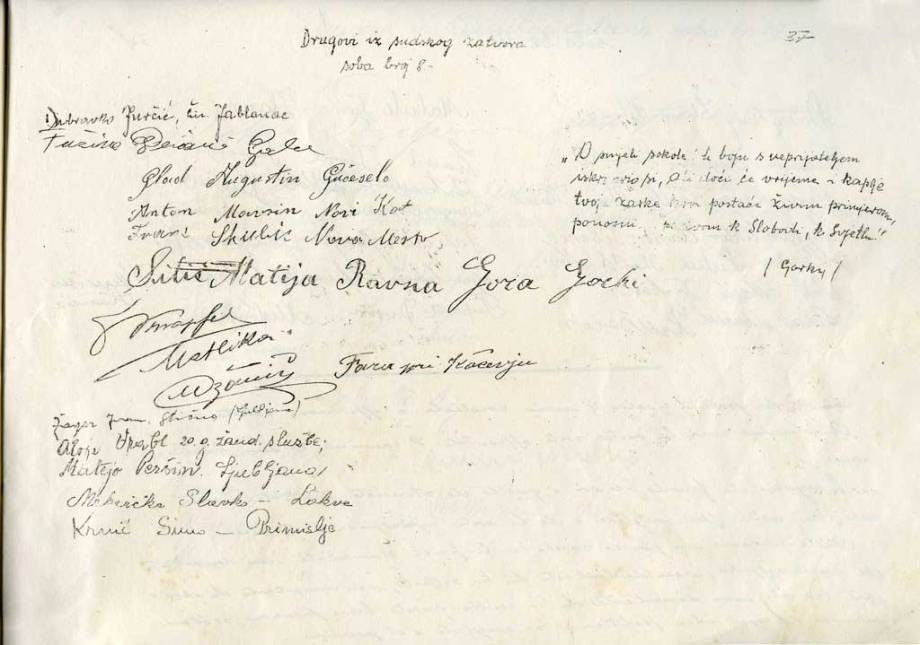 37
Drugovi iz sudskog zatvora
soba broj 8.
Dubravko Jurčić, žu. Jablanac
Glad Augustin Gučeselo
Anton Marsin Novi Kot
Franc Skubic Novo Mesto,
Matija Ravna Gora Gorski
Metlika
Fara pri Kočevju
Žagar Ivan. Stična (Ljubljana)
Alojz 20.g. žand. službe;
Matejo Peršin. Ljubljana
Slavko - Lokve
Krnić Simo - Primišlje
„O smjeli sokole! U boju s neprijateljem
iskrvario si, ali doći će vrijeme i kaplje
tvoje žarke krvi postaće živim primjerom,
ponosni zivom k Slobodi, k Svjetlu"!
/ Gorky /